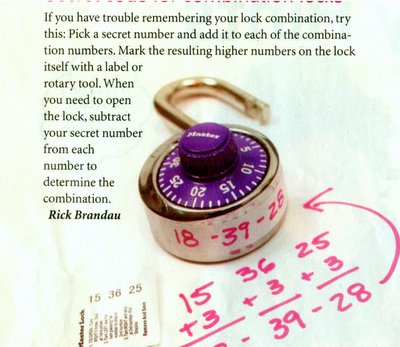 If you have trouble remembering your lock combination, try
this: Pick a secret number and add it to each of the combina-
tion numbers. Mark the resulting higher numbers on the lock
itself with a label or
rotary tool. When
you need to open
the lock, subtract
your secret number
from each
number to
determine the
combination.
Rick Brandau
Master
5
10
15
20
25
18 - 39 - 25
15 36 25
15 36 25
+3 +3 +3
- 39 - 28
Master Lock